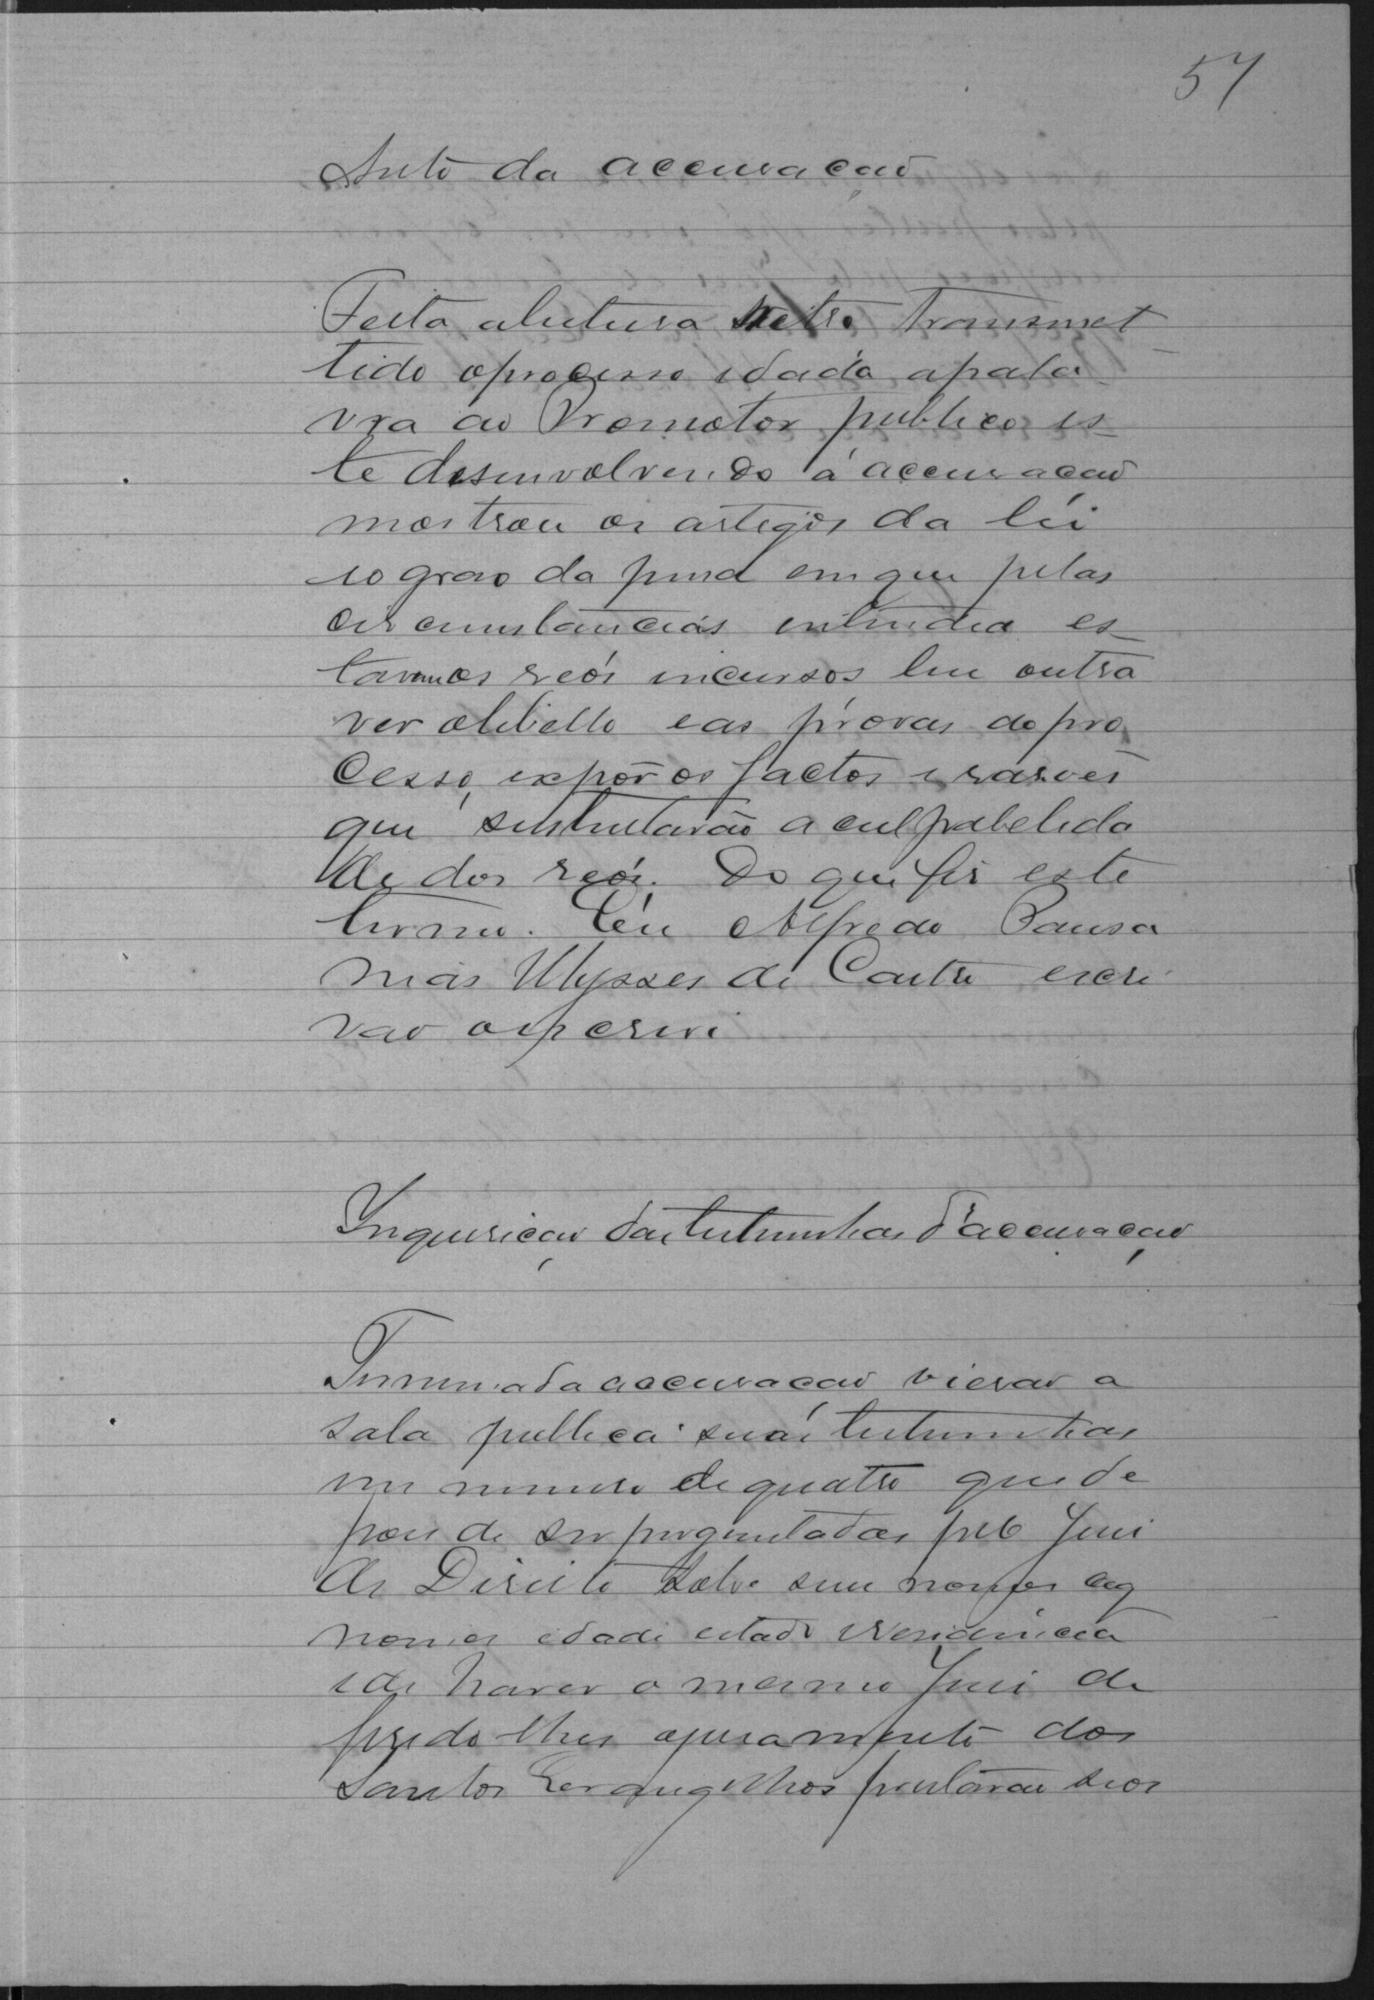 57
Auto da accusação
Feita a leitura retro transmet
tido o processo e dada a pala
vra ao Promotor publico es
te desenvolvendo a accusação
mostrou os artigos da lei
e o grao da pena em que pelas
circumstancias entendia es
tavam os reos incursos leu outra
vez o libello e as provas do pro
cesso, expôz os factos e rasões
que sustentarão a culpabilida
de dos reos. Do que fis este
termo. Eu Alfredo Pausa
nias Ulysses de Castro escri
vão o escrevi
Inquirição das testemunhas d'accusação
Terminada a accusação vierão a
sala publica suas testemunhas
em numero de quatro que de
pois de ser perguntadas pelo Juis
de Direito sobre seus nomes cog
nomes edade estado e residencia
e de haver o mesmo Juis de
ferido lhes o juramento dos
Santos Evangelhos prestarão seos